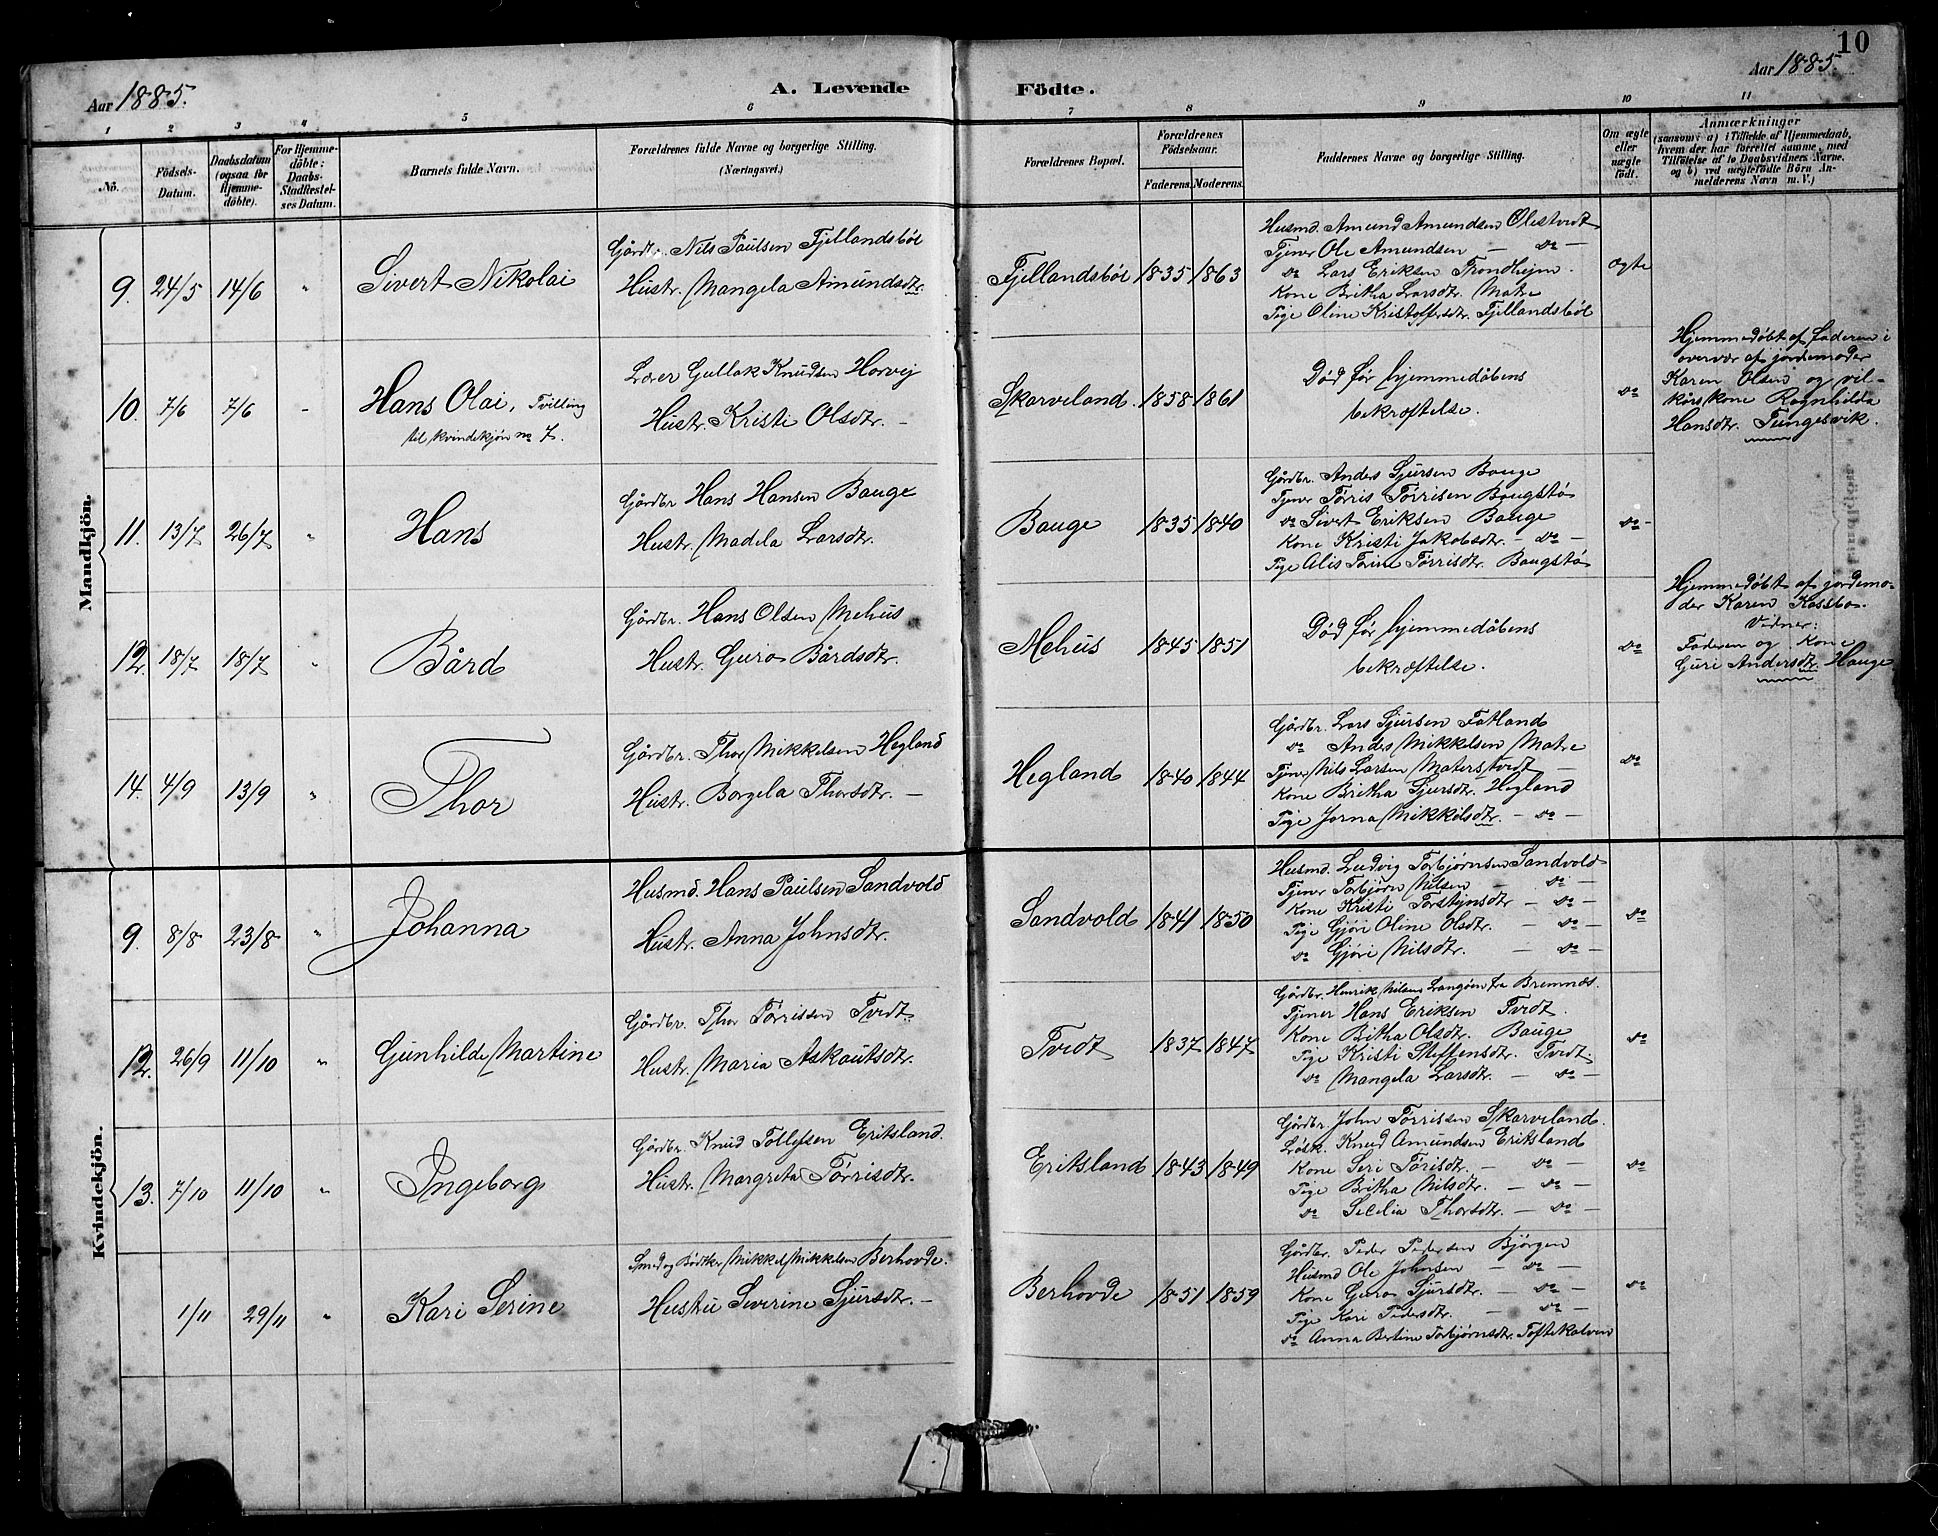 10
Aar 1885.
A. Levende Födte.
Aar 1885.
1 2 3 4 5 6 7 8 9 10 11
No.
Födsels-Datum.
Daabsdatum (ogsaa for Hjemme-döbte).
For Hjemme-döbte: Daabs-Stadfæstel-ses Datum.
Barnets fulde Navn.
Forældrenes fulde Navne og borgerlige Stilling.
(Næringsvei.)
Forældrenes Bopæl.
Forældrenes Födselsaar.
Faderens. Moderens.
Faddernes Navne og borgerlige Stilling.
Om ægte eller uægte födt.
Anmærkninger
(saasom: a) i Tilfælde af Hjemmedaab, hvem der har forrettet samme, med Tilföielse af to Daabsvidners Navne, og b) ved uægtefödte Börn An-melderens Navn m. V.)
Mandkjön.
9. 24/5 14/6 "
Sivert Nikolai
Gårdbr. Nils Paulsen Fjellandsbøl
Hustr. Mangela Amundsdtr.
Fjellandsbøl 1835 1863
Husmd. Amund Amundsen Ølestvedt
Tjener Ole Amundsen — do —
do Lars Eriksen Trondhejm.
Kone Britha Larsdtr. Matre
Pige Oline Kristoffersdtr. Fjellandsbøl
ægte
10. 7/6 7/6 "
Hans Olai, Tvilling
til kvindekjøn no 7.
Lærer Gullak Knudsen Horvej
Hustr. Kristi Olsdtr. —
Skarveland. 1858 1861
Død før hjemmedåbens
bekræftelse.
do
Hjemmedøbt af faderen i
overvær af jordemoder
Karen Olsen og vil-
kårskone Ragnhilda
Hansdtr. Tungesvik.
11. 13/7 26/7 "
Hans
Gårdbr Hans Hansen Bauge
Hustr. Madela Larsdtr.
Bauge 1835 1840
Gårdbr. Anders Sjursen Bauge
Tjener Tørris Tørrisen Baugstø
do Sivert Eriksen Bauge
Kone Kristi Jakobsdtr. — do —
Pige Alis Tørine Tørrisdtr. Baugstø
do
12. 18/7 18/7 "
Bård
Gårdbr. Hans Olsen Mehus
Hustr. Guro Bårdsdtr.
Mehus 1845 1851
Død før hjemmedåbens
bekræftelse.
do
Hjemmedøbt af jordemo-
der Karen Kassbo.
Vidner:
Faderen og Kone
Guri Andersdtr. Hauge
14. 4/9 13/9 "
Thor
Gårdbr. Thor Mikkelsen Hegland
Hustr. Borgela Thorsdtr. —
Hegland 1840 1844
Gårdbr. Lars Sjursen Fatland
do Anders Mikkelsen Matre
Tjener Nils Larsen Materstvedt —
Kone Britha Sjursdtr. Hegland
Pige Jorna Mikkelsdtr. — do —
do
Kvindekjön.
9. 8/8 23/8 "
Johanna
Husmd. Hans Paulsen Sandvold
Hustr. Anna Johnsdtr.
Sandvold 1841 1850
Husmd. Ludvig Torbjørnsen Sandvold
Tjener Torbjørn Nilsen — do —
Kone Kristi Torstejnsdtr — do —
Pige Gjøri Oline Olsdtr. — do —
do Gjøri Nilsdtr. — do —
do
12. 26/9 11/10 "
Gunhilde Martine
Gårdbr. Thor Tørrissen Tvedt.
Hustr. Maria Askautsdtr.
Tvedt 1837 1847
Gårdbr. Henrik Nilsen Langøen fra Bremnæs.
Tjener Hans Eriksen Tvedt.
Kone Britha Olsdtr. Bauge
Pige Kristi Steffensdtr. Tvedt.
do Mangela Larsdtr. — do —
do
13. 7/10 11/10 "
Ingeborg
Gårdbr Knud Tollefsen Eritsland.
Hustr. Margreta Tørrisdtr.
Eritsland 1843 1849
Gårdbr. John Tørrissen Skarveland.
Løsk. Knud Amundsen Eritsland
Kone Seri Tørisdtr. — do —
Pige Britha Nilsdtr. — do —
do Secelia Thorsdtr. — do —
do
1/11 29/11 "
Kari Serine
Smed og Bødker Mikkel Mikkelsen Berhovde.
Hustru Severine Sjursdtr. —
Berhovde 1851 1859
Gårdbr. Peder Pedersen Bjørgen
Husmd Ole Johnsen — do —
Kone Guro Sjursdtr. — do —
Pige Kari Pedersdtr. — do —
do Anna Bertine Torbjørnsdtr. Toftekalven
do